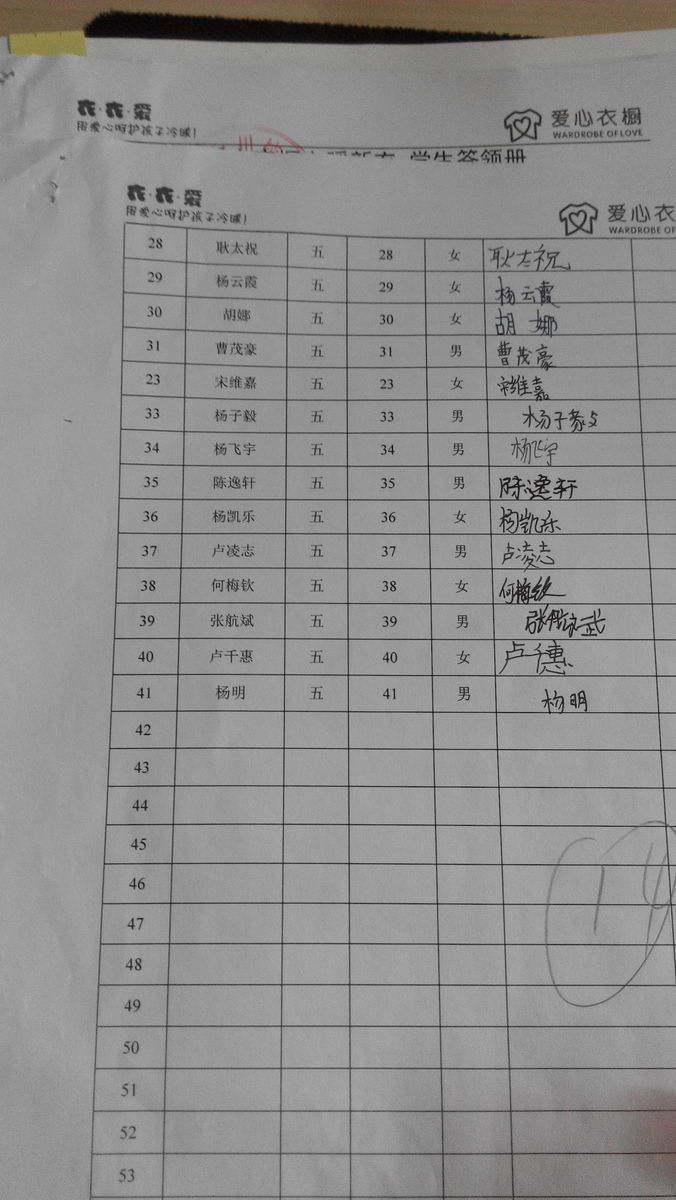 衣·衣·爱
用爱心呵护孩子冷暖!
爱心衣橱
WARDROBE OF LOVE
学生签领册
衣·衣·爱
用爱心呵护孩子冷暖!
爱心衣
WARDROBE OF
28 耿太祝 五 28 女 耿太祝
29 杨云霞 五 29 女 杨云霞
30 胡娜 五 30 女 胡娜
31 曹茂豪 五 31 男 曹茂豪
23 宋维嘉 五 23 女 宋维嘉
33 杨子毅 五 33 男 杨子毅
34 杨飞宇 五 34 男 杨飞宇
35 陈逸轩 五 35 男 陈逸轩
36 杨凯乐 五 36 女 杨凯乐
37 卢凌志 五 37 男 卢凌志
38 何梅钦 五 38 女 何梅钦
39 张航斌 五 39 男 张航斌
40 卢千惠 五 40 女 卢千惠
41 杨明 五 41 男 杨明
42
43
44
45
46
47
48
49
50
51
52
53
14